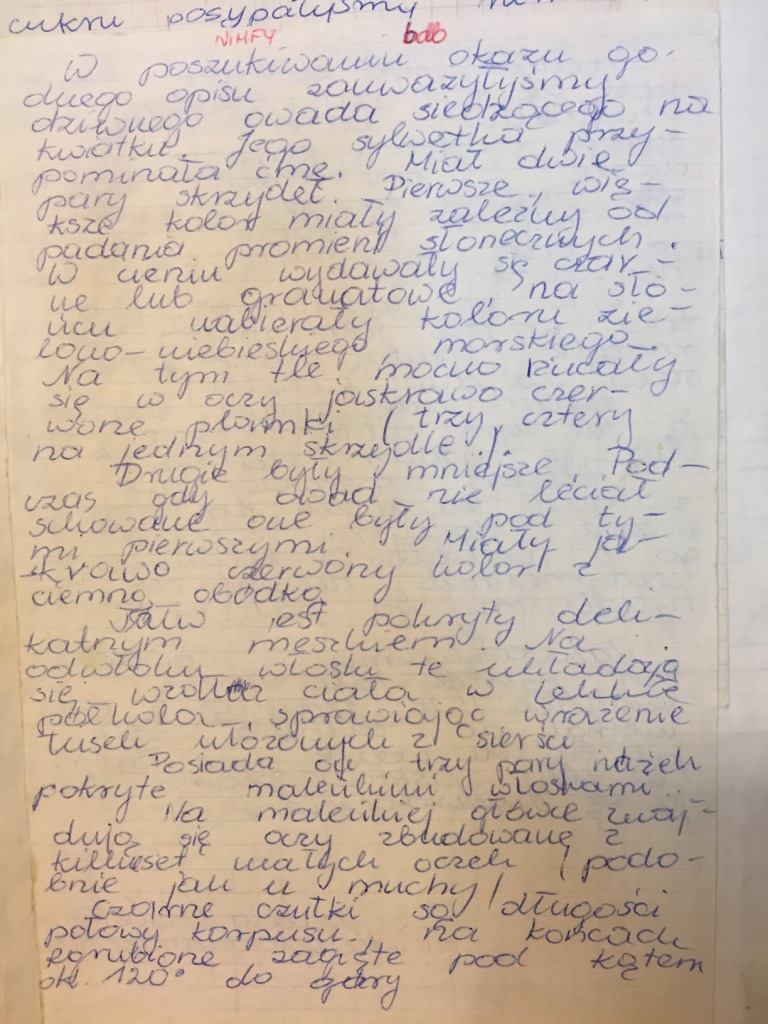 cukru posypałyśmy
NIMFY bdb
W poszukiwaniu okazu go-
dnego opisu zauważyłyśmy
dziwnego owada siedzącego na
kwiatku. Jego sylwetka przy-
pominała ćmę. Miał dwie
pary skrzydeł. Pierwsze, wię-
ksze kolor miały zależny od
padania promieni słonecznych.
W cieniu wydawały się czar-
ne lub granatowe, na słoń-
ńcu nabierały koloru zie-
lono-niebieskiego, morskiego.
Na tym tle mocno rzucały
się w oczy jaskrawo czer-
wone plamki (trzy, cztery
na jednym skrzydle.)
Drugie były mniejsze. Pod-
czas gdy owad nie leciał
schowane one były pod ty-
mi pierwszymi. Miały ja-
skrawo czerwony kolor z
ciemną obódką
Tułów jest pokryty deli-
katnym meszkiem. Na
odwłoku włoski te układają
się wzdłuż ciała w
półkola, sprawiając wrażenie
łusek ułożonych z sierści
Posiada on trzy pary nóżek
pokryte maleńkimi włoskami.
Na maleńkiej główce znaj-
dują się oczy zbudowane z
kilkuset małych oczek (podo-
bnie jak u muchy)
Czarne czułki są długości
połowy korpusu. Na końcach
zgrubione zagięte pod kątem
ok. 120° do góry